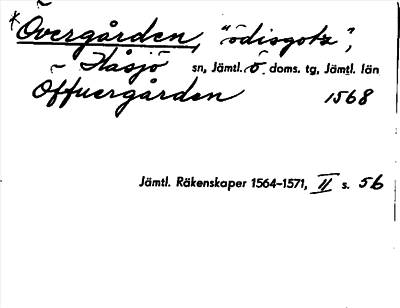 *Övergården, "ödisgotz",
Håsjö sn, Jämtl. Ö. doms. tg, Jämtl. län
Öffuergården 1568
Jämtl. Räkenskaper 1564-1571, II s. 56